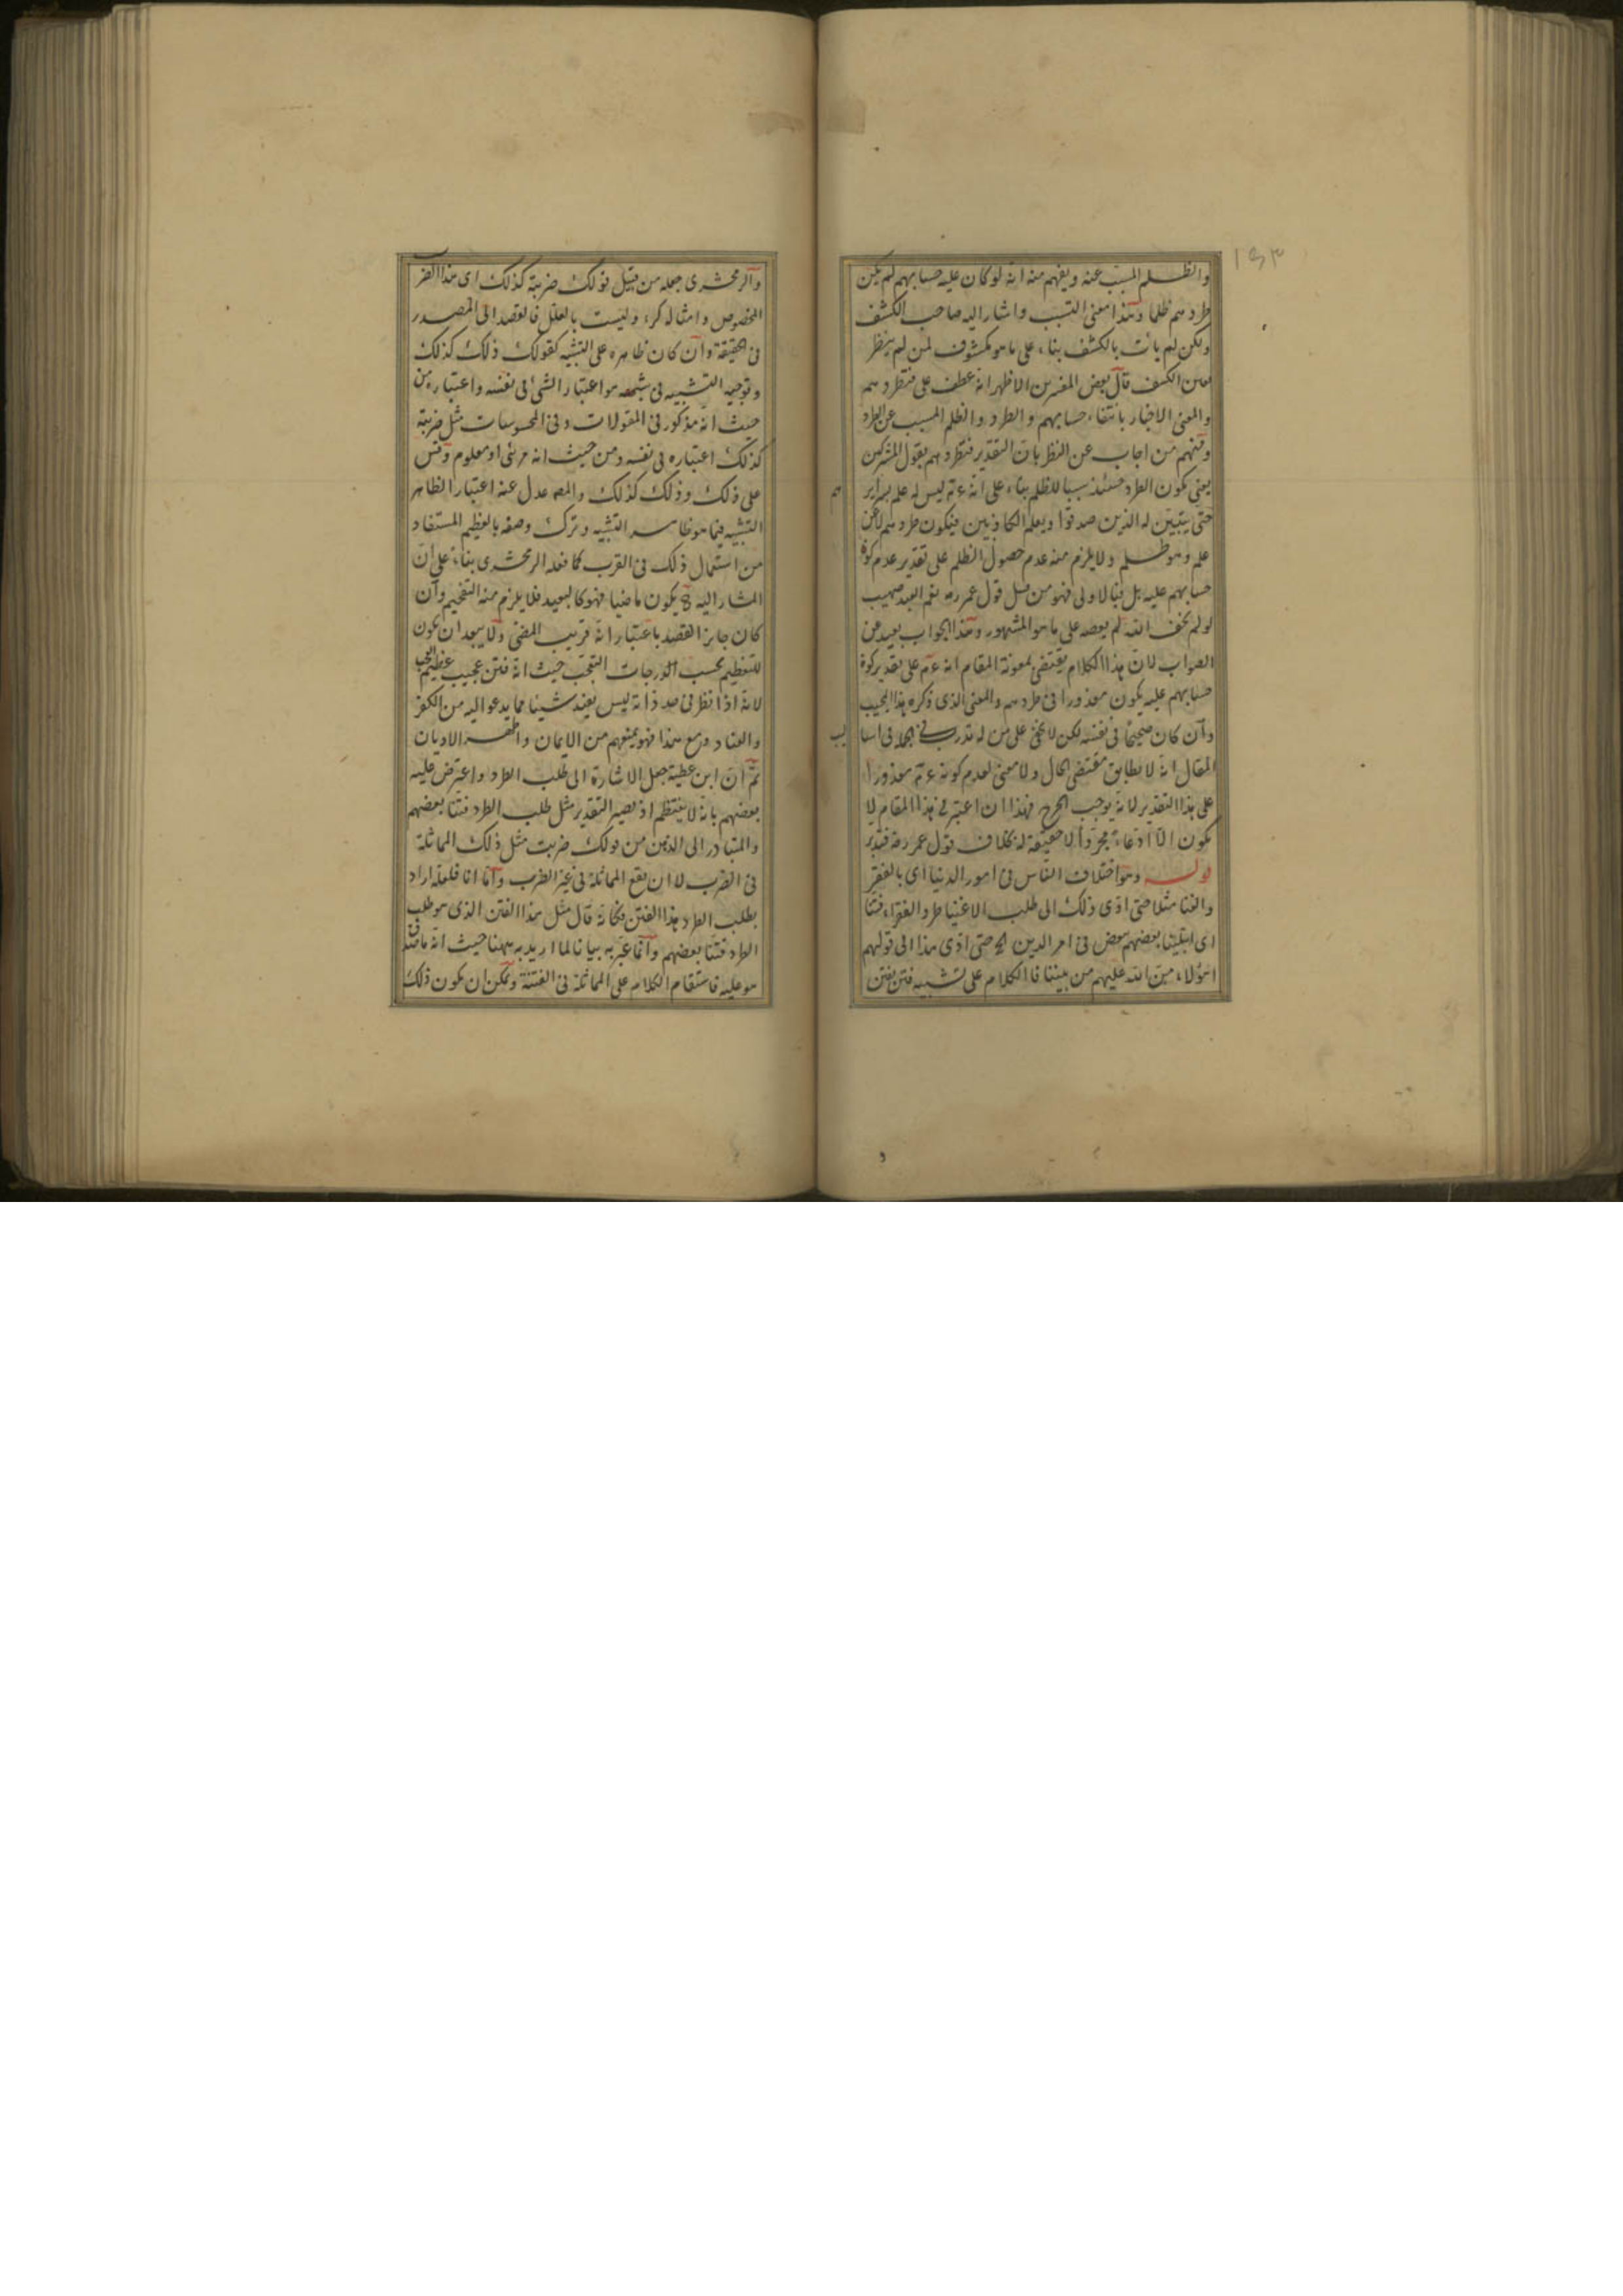 ١٥٣
والظلم المسبب عنه ويفهم منه انه لو كان عليه حسابهم لم يكن
طردهم ظلما وهذا معنى التسبب واشار اليه صاحب الكشف
ولكن لم يأت بالكشف بناء على ما هو مكشوف لمن لم ينظر
بعين الكشف قال بعض المفسرين الاظهر انه عطف على فتطردهم
والمعنى الاخبار بانتفاء حسابهم والطرد والظلم المسبب عن الطرد
ومنهم من اجاب عن النظر بان التقدير فتطردهم بقول المشركين
يعنى يكون الطرد حينئذ سببا للظلم بناء على انه ءم ليس له علم بسراير
هم
حتى يتبين له الذين صدقوا ويعلم الكاذبين فيكون طردهم لا عن
علم وهو ظلم ولا يلزم منه عدم حصول الظلم على تقدير عدم كون
حسابهم عليه بل بالاولى فهو من قبيل قول عمر رضه نعم العبد صهيب
لو لم يخف الله لم يعصه على ما هو المشهور وهذا الجواب بعيد عن
الصواب لان هذا الكلام يقتضى بمعونة المقام انه ءم على تقدير كون
حسابهم عليه يكون معذورا فى طردهم والمعنى الذى ذكره هذا المجيب
وان كان صحيحا فى نفسه لكن لا يخفى على من له تدرب فى الجملة فى اسا
ليب
المقال انه لا يطابق مقتضى الحال ولا معنى لعدم كونه ءم معذورا
على هذا التقدير لانه يوجب الحرج فهذا ان اعتبر فى هذا المقام لا
يكون الا ادعاء مجردا لا حقيقة له بخلاف قول عمر رضه فتدبر
قوله وهو اختلاف الناس فى امور الدنيا اى بالفقر
والغنا مثلا حتى ادى ذلك الى طلب الاغنيا طرد الفقراء فتنا
اى ابتلينا بعضهم ببعض فى امر الدين الخ حتى ادى هذا الى قولهم
اهؤلاء من الله عليهم من بيننا فالكلام على تشبيه فتن بفتن
والزمخشرى جعله من قبيل قولك ضربته كذلك اى هذا الضر
المخصوص وامثاله كرء وليست بالعلل فالقصد الى المصدر
فى الحقيقة وان كان ظاهره على التشبيه كقولك ذلك كذلك
وتوجيه التشبيه فى شبهه هو اعتبار الشئ فى نفسه واعتباره من
حيث انه مذكور فى المقولات وفى المحسوسات مثل ضربته
كذلك اعتباره فى نفسه ومن حيث انه مرئى او معلوم وقس
على ذلك وذلك كذلك والمص عدل عنه اعتبار الظاهر
التشبيه فيما هو ظاهر التشبيه وترك وصفه بالعظيم المستفاد
من استعمال ذلك فى القرب كما فعله الزمخشرى بناء على ان
المشار اليه يكون ماضيا فهو كالبعيد فلا يلزم منه التفخيم وان
كان جايز القصد باعتبار انه قريب المضى ولا يبعد ان يكون
للتعظيم بحسب الدرجات التعجب حيث انه فتن عجيب عظيم العجب
لانه اذا نظر فى حد ذاته ليس يفيد شيئا مما يدعو اليه من الكفر
والعناد ومع هذا فهو يمنعهم من الايمان واظهر الاديان
ثم ان ابن عطية جعل الاشارة الى طلب الطرد واعترض عليه
بعضهم بانه لا ينتظم اذ يصير التقدير مثل طلب الطرد فتنا بعضهم
والمتبادر الى الذهن من قولك ضربت مثل ذلك المماثلة
فى الضرب لا ان يقع المماثلة فى غير الضرب واما انا فلعله اراد
بطلب الطرد هذا الفتن فكانه قال مثل هذا الفتن الذى هو طلب
الطرد فتنا بعضهم وانما عبر به بيانا لما اريد به ههنا حيث انه ما صدق
هو عليه فاستقام الكلام على المماثلة فى الفتنة ويمكن ان يكون ذلك